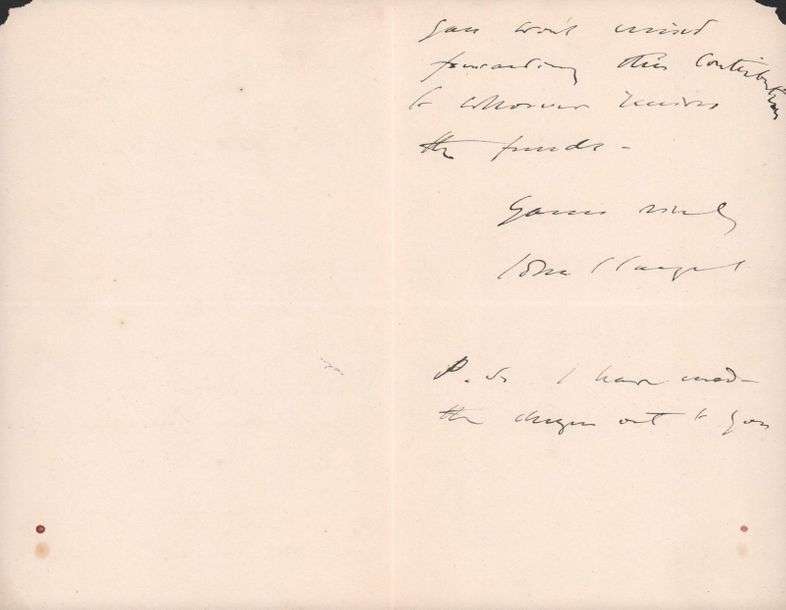 you won't mind
forwarding this contribution
to whoever receives
the funds -
Yours sincerely
John S Sargent
P.S. I have made
the cheque out to you